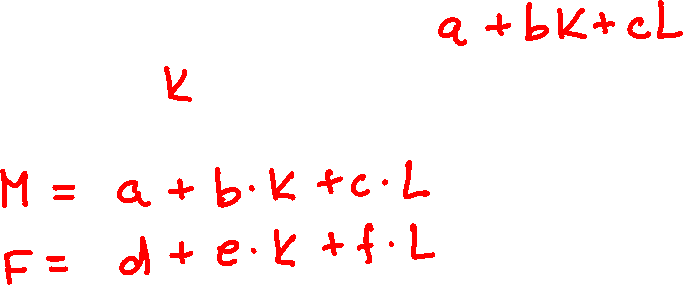 a + bK + cL
K
M = a + b·K + c·L
F = d + e·K + f·L